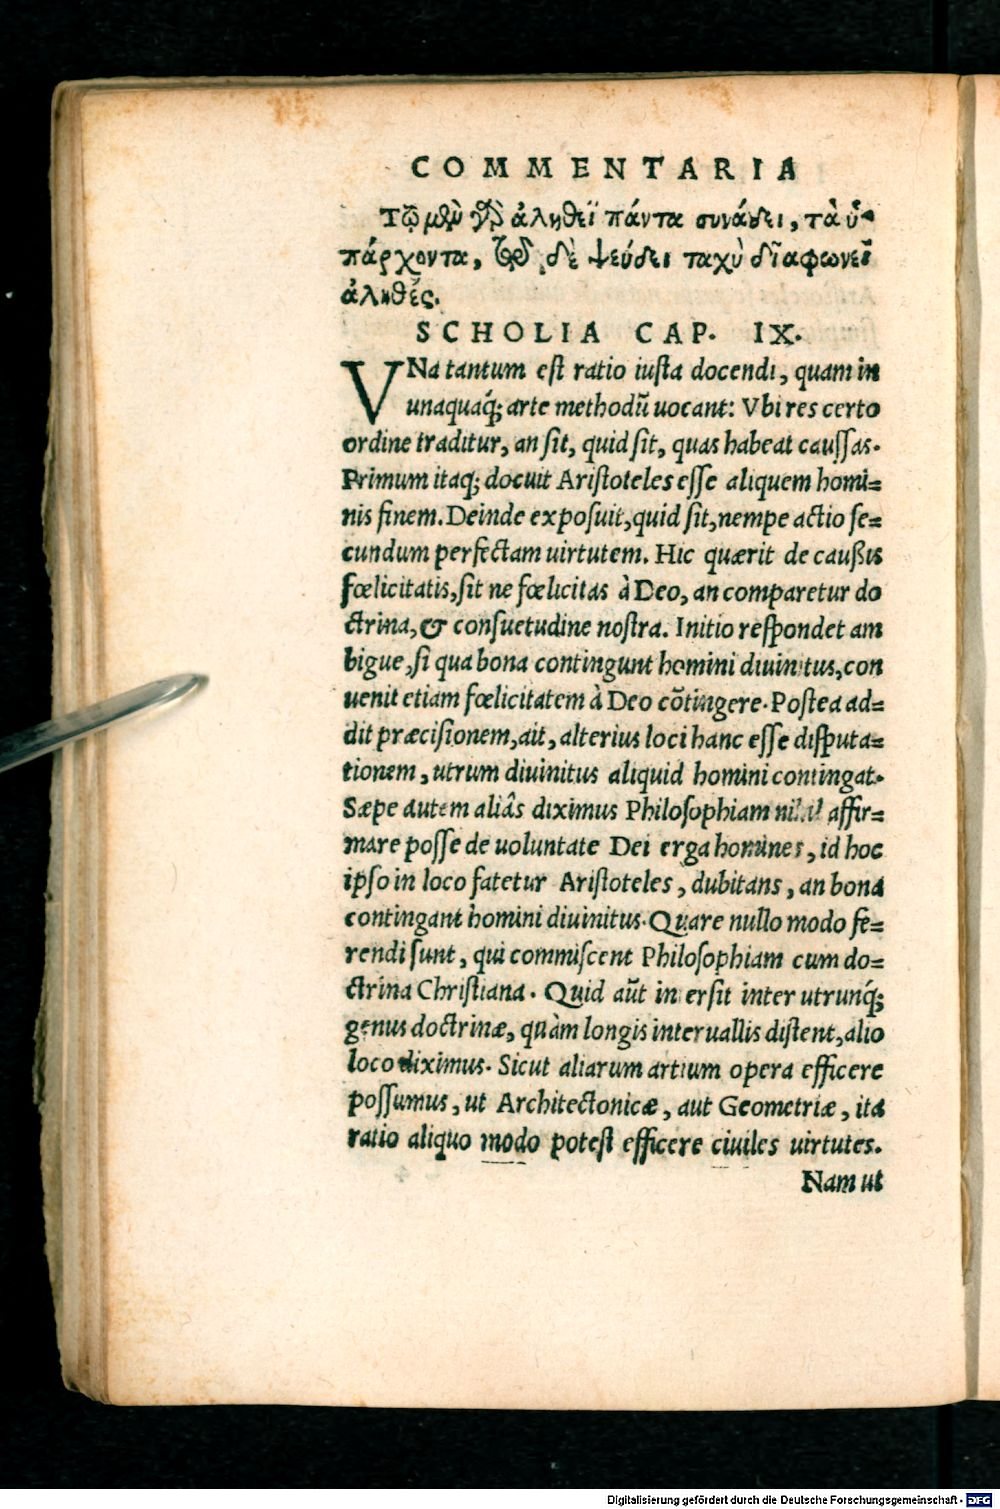 COMMENTARIA
Τῷ μὲν γὰρ ἀληθεῖ πάντα συνάδει, τὰ ὑ-
πάρχοντα, τῷ δὲ ψεύδει ταχὺ διαφωνεῖ
ἀληθές.
SCHOLIA CAP. IX.
VNa tantum est ratio iusta docendi, quam in
unaquaq; arte methodū uocant: Vbi res certo
ordine traditur, an sit, quid sit, quas habeat caussas.
Primum itaq; docuit Aristoteles esse aliquem homi=
nis finem. Deinde exposuit, quid sit, nempe actio se=
cundum perfectam uirtutem. Hic quærit de caußis
fœlicitatis, sit ne fœlicitas à Deo, an comparetur do
ctrina, & consuetudine nostra. Initio respondet am
bigue, si qua bona contingunt homini diuinitus, con
uenit etiam fœlicitatem à Deo cōtingere. Postea ad=
dit præcisionem, ait, alterius loci hanc esse disputa=
tionem, utrum diuinitus aliquid homini contingat.
Sæpe autem aliâs diximus Philosophiam nihil affir=
mare posse de uoluntate Dei erga homines, id hoc
ipso in loco fatetur Aristoteles, dubitans, an bona
contingant homini diuinitus. Quare nullo modo fe=
rendi sunt, qui commiscent Philosophiam cum do=
ctrina Christiana. Quid aūt intersit inter utrunq;
genus doctrinæ, quàm longis interuallis distent, alio
loco diximus. Sicut aliarum artium opera efficere
possumus, ut Architectonicæ, aut Geometriæ, ita
ratio aliquo modo potest efficere ciuiles uirtutes.
Nam ut
Digitalisierung gefördert durch die Deutsche Forschungsgemeinschaft - DFG